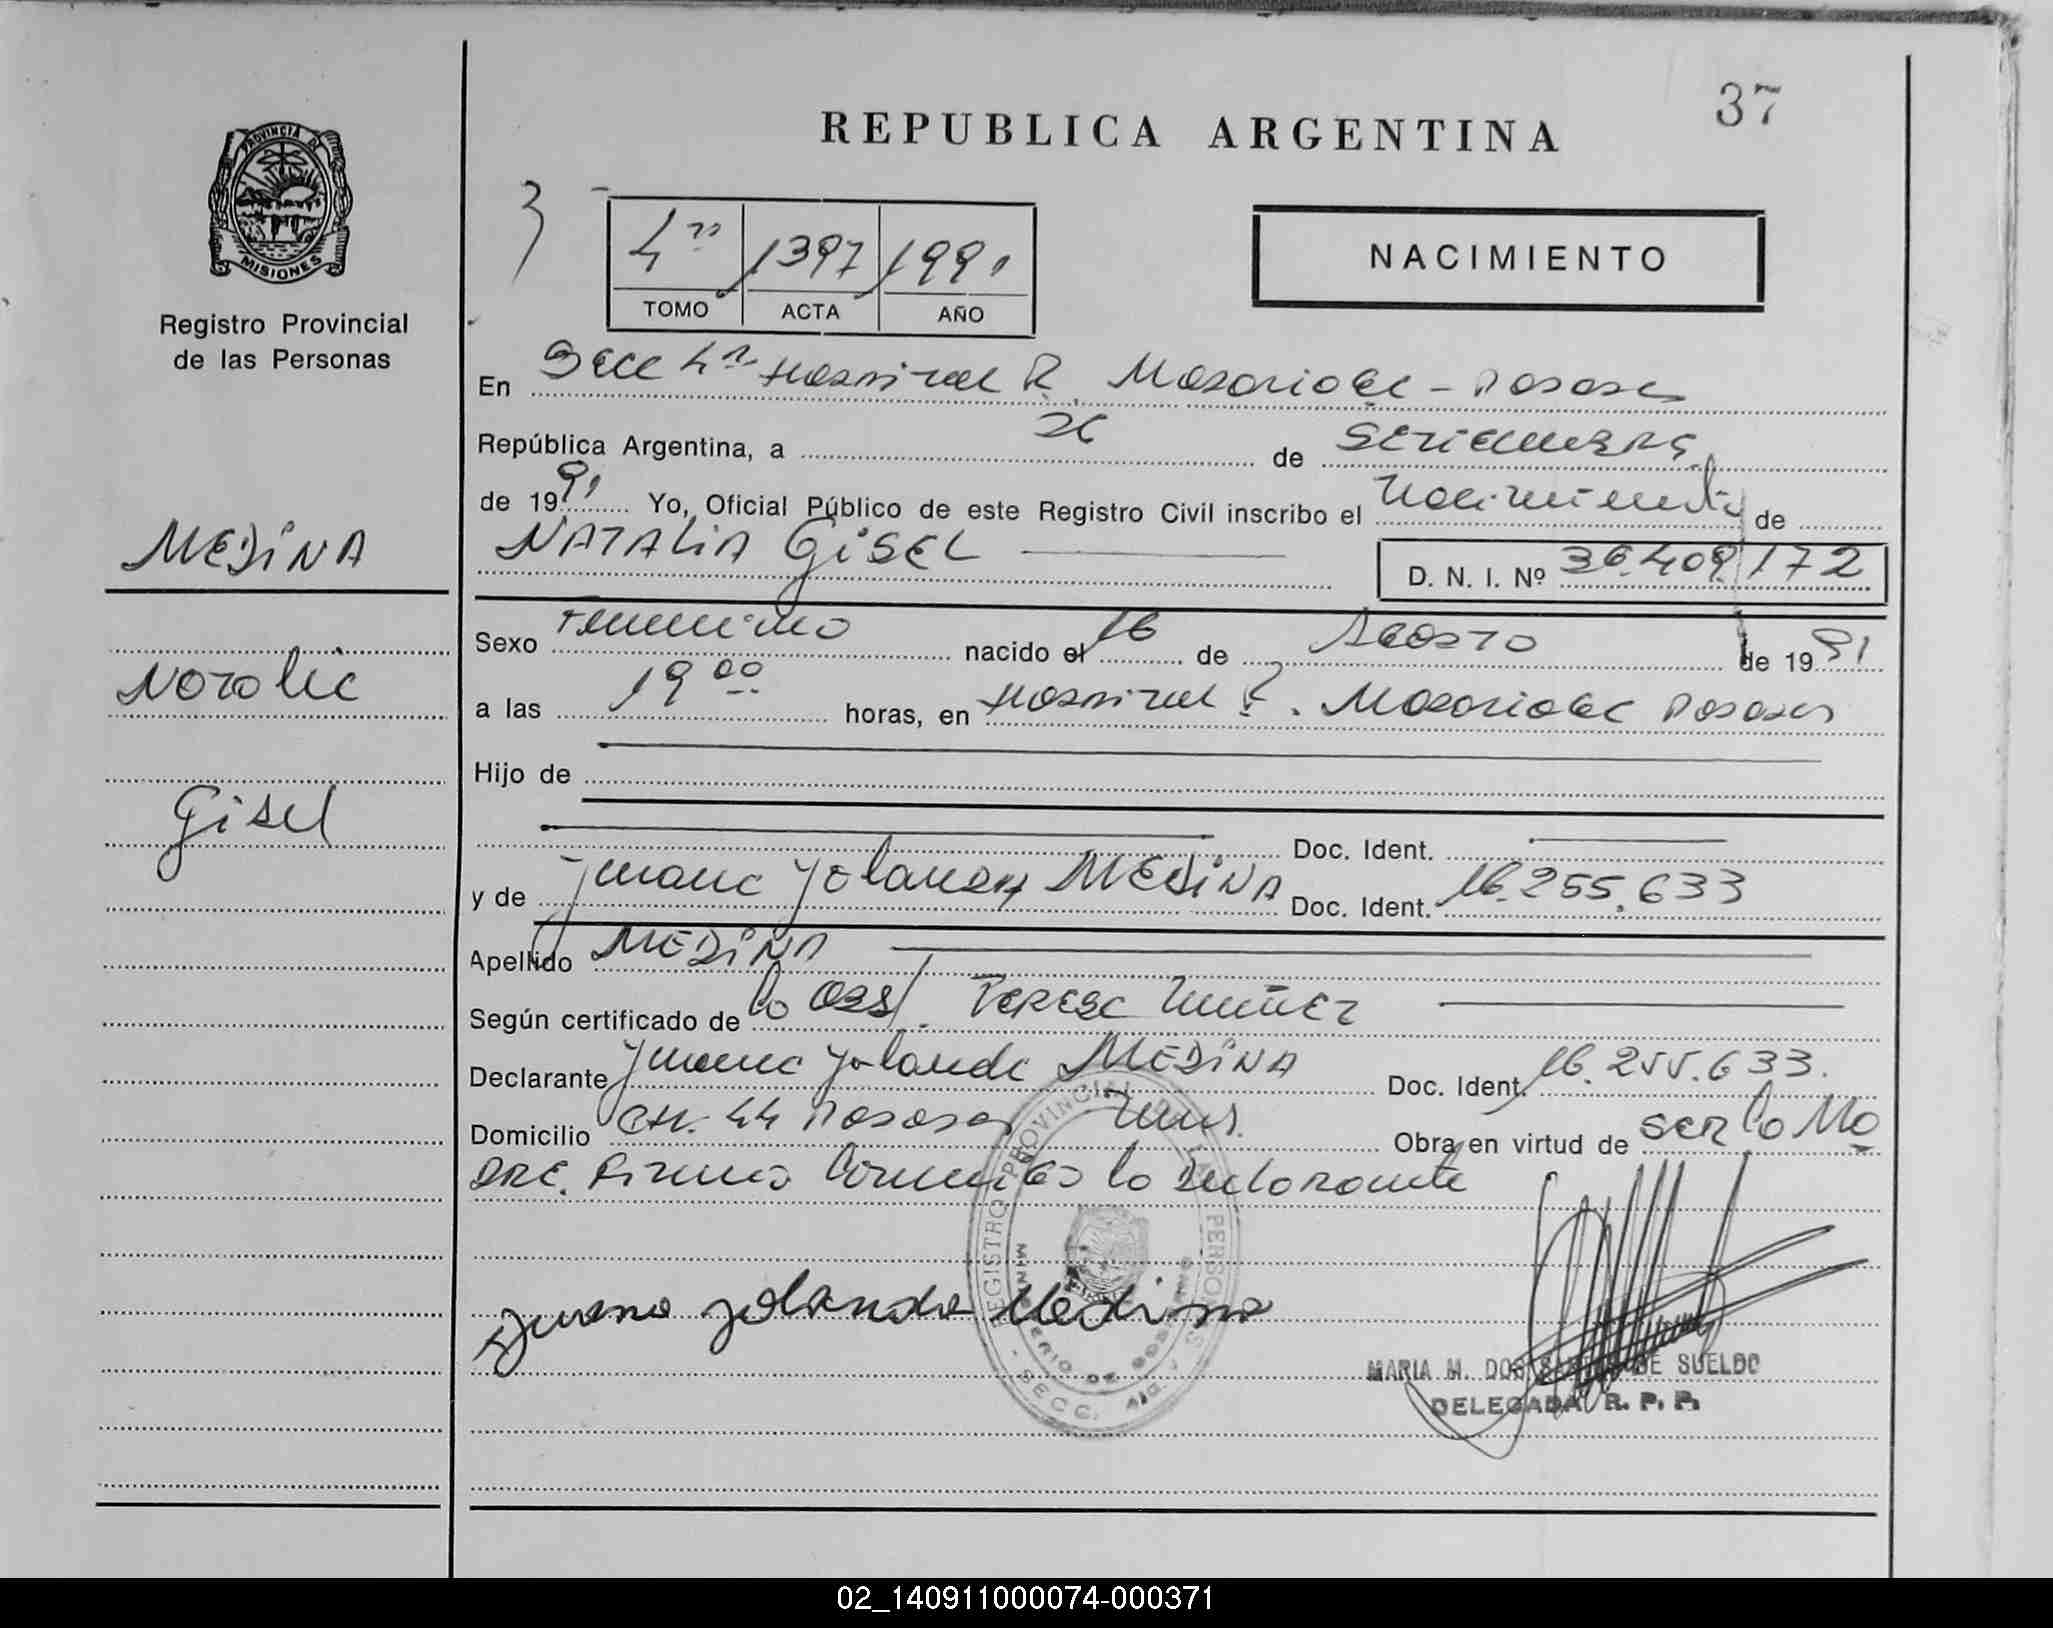 37
REPUBLICA ARGENTINA
PROVINCIA DE
MISIONES
Registro Provincial
de las Personas
3
4to 1397 1991
TOMO ACTA AÑO
NACIMIENTO
En Secc 4ta Hospital R. Madariaga - Posadas
República Argentina, a 26 de SETIEMBRE
de 1991 Yo, Oficial Público de este Registro Civil inscribo el Nacimiento de
MEDINA
NATALIA GISEL
D. N. I. Nº 36.409.172
Natalia
Gisel
Sexo Femenino nacido el 16 de Agosto de 1991
a las 19 00 horas, en Hospital R. Madariaga Posadas
Hijo de
Doc. Ident.
y de Juana Yolanda MEDINA Doc. Ident. 16.255.633
Apellido MEDINA
Según certificado de la Obst. Teresa Nuñez
Declarante Juana Yolanda MEDINA Doc. Ident. 16.255.633.
Domicilio Ch. 44 Posadas Obra en virtud de ser la Ma
dre. Firma Conmigo la Declarante
Juana Yolanda Medina
REGISTRO PROVINCIAL DE LAS PERSONAS
MINISTERIO DE GOBIERNO
SECC.
MARIA M. DOS SANTOS DE SUELDO
DELEGADA R. P. P.
02_140911000074-000371